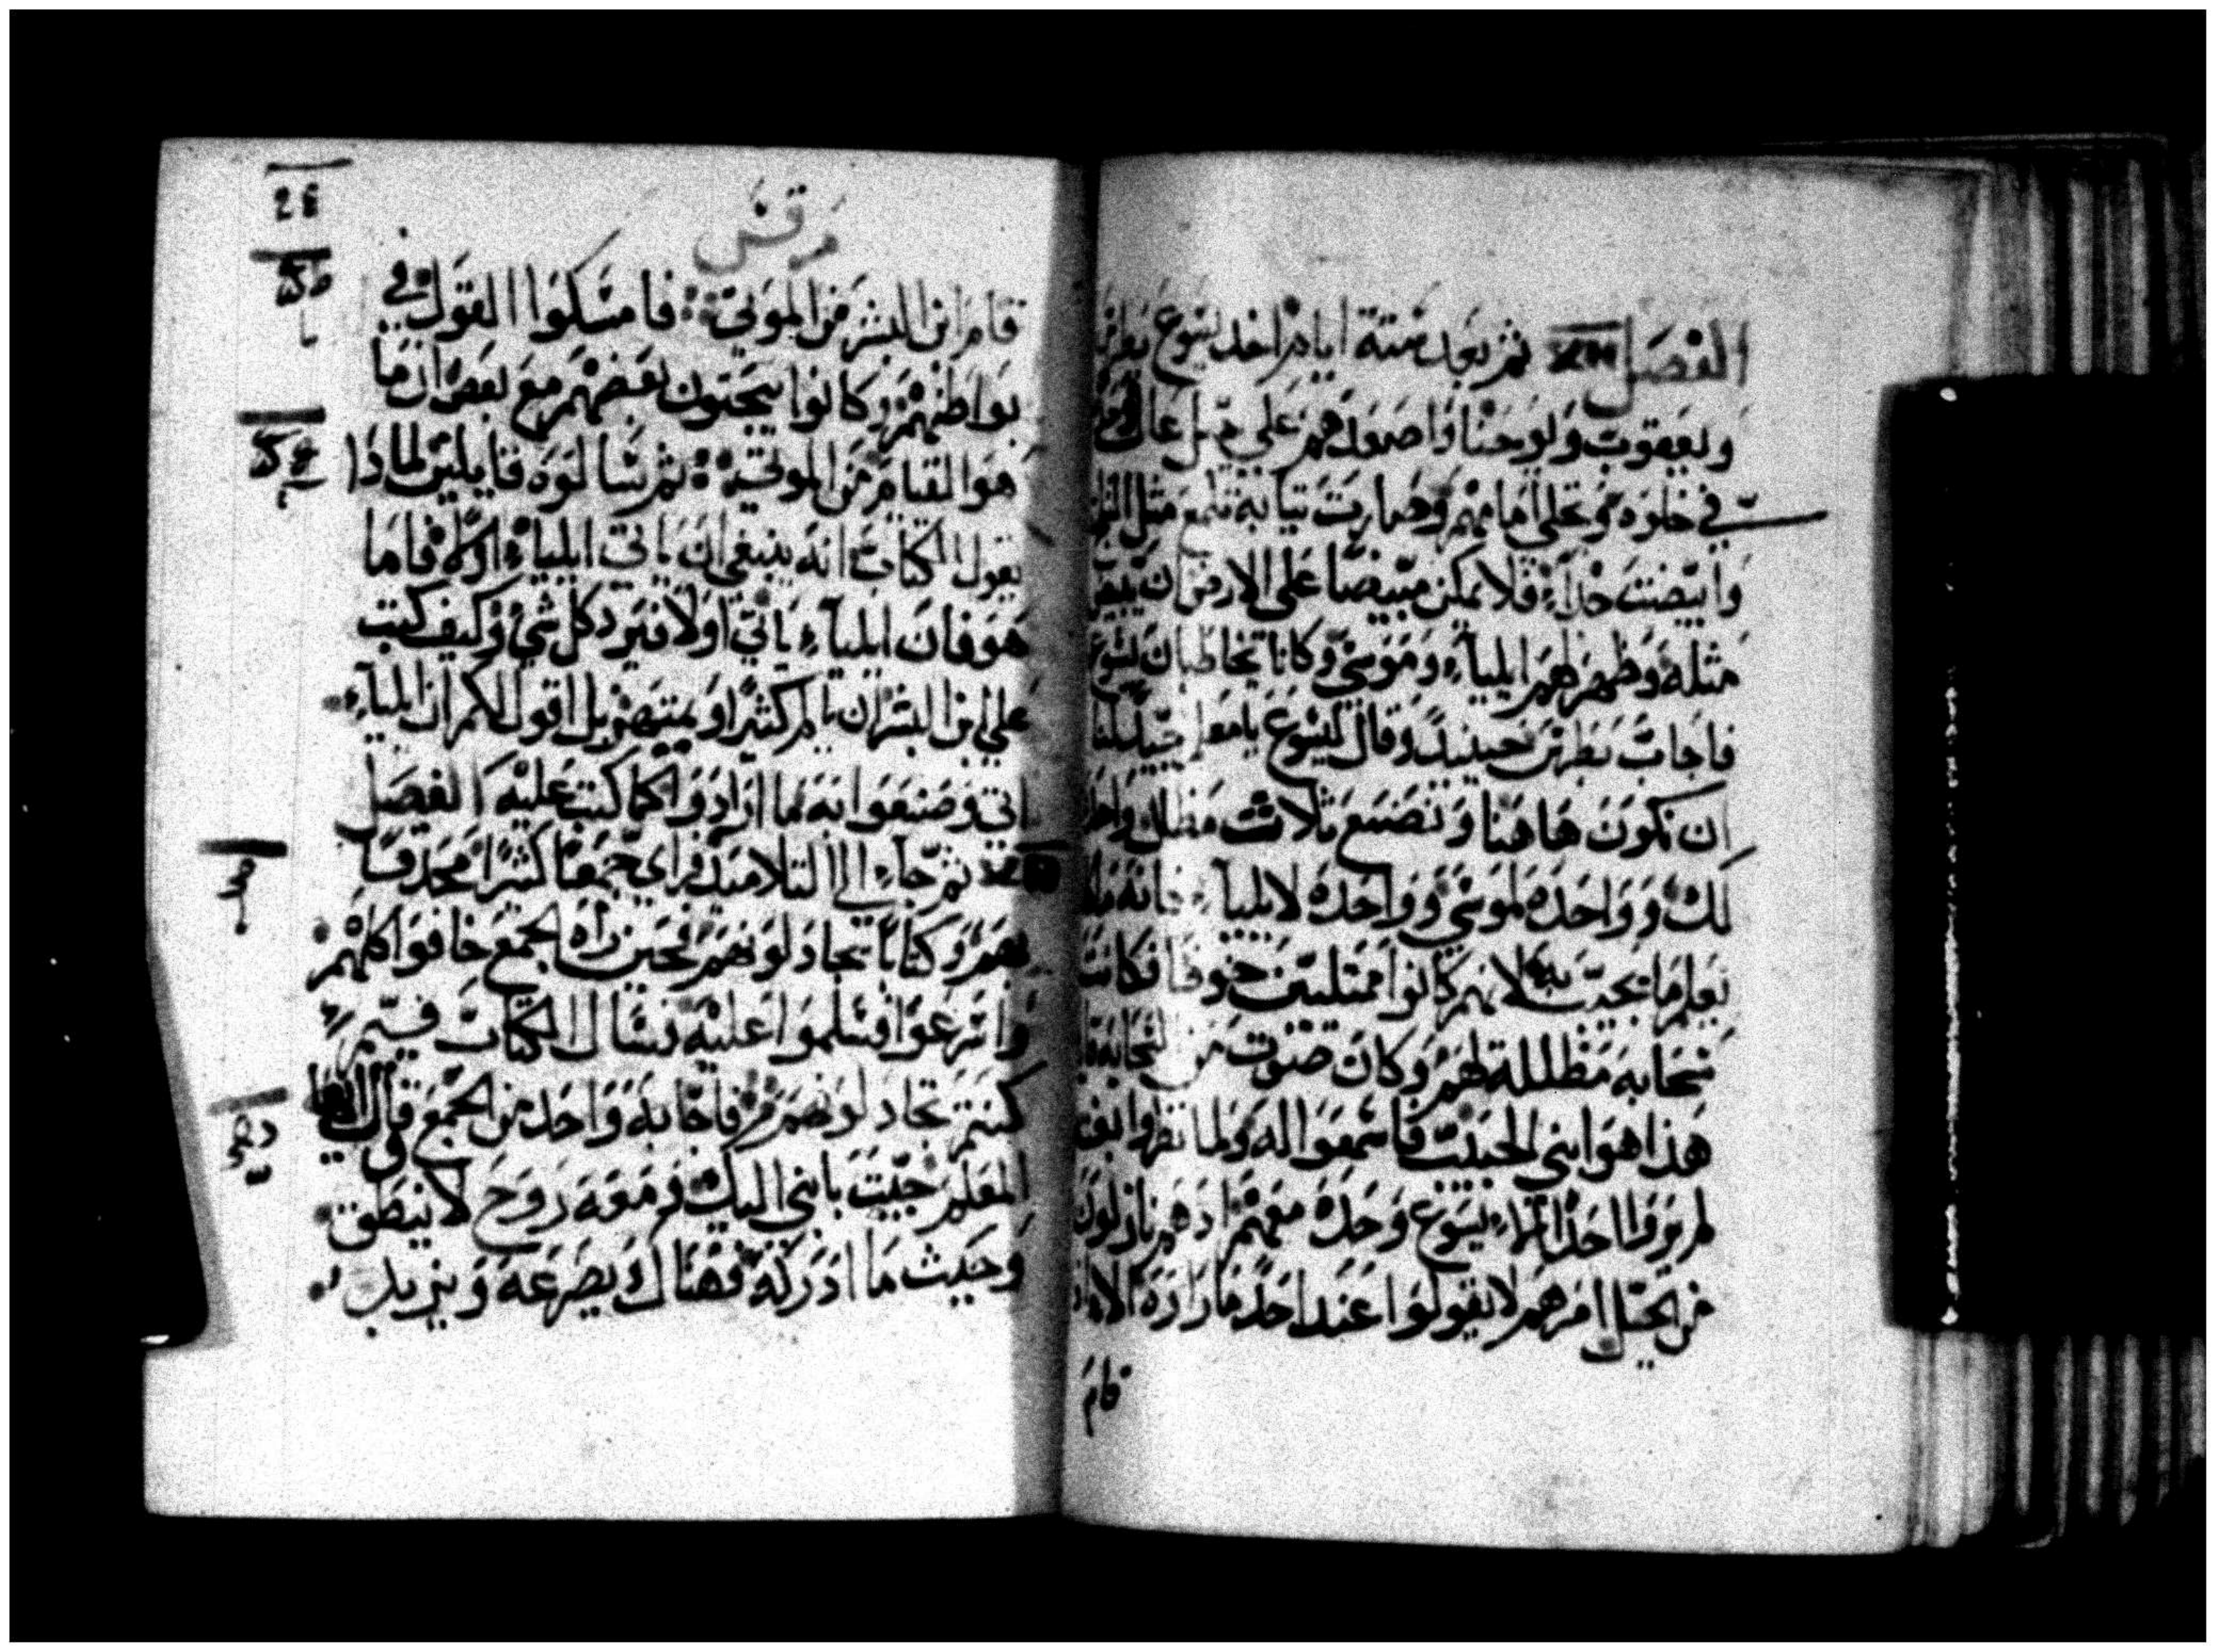 الفصل ثم بعد ستة ايام اخذ يسوع
ويعقوب ويوحنا واصعدهم على جبل عال
في خلوه وتجلى امامهم وصارت تيابه تلمع مثل
وابيضت جداء فلا يمكن مبيضا على الارض ان يبيض
مثله وظهر لهم ايلياء وموسى وكانا يخاطبان يسوع
فاجاب بطرس حينيد وقال ليسوع يا معلم جيد لنا
ان نكون هاهنا ونصنع ثلاث مظلل واحده
لك وواحده لموسى وواحده لايليا
يعلم ما يجيب به لانهم كانوا ممتليين خوفا فكانت
سحابه مظللة لهم وكان صوت من السحابه
هذا هوابني الحبيب فاسمعوا له ولما نظروا بغتة
لم يروا احدا الاء يسوع وحده معهم اد هم نازلون
من الجبل امرهم لا يقولوا عند احد ما راوه الا اذا
قام
26
مرقس
قام ابن البشر من الموتى فامسكوا القول في
بواطنهم وكانوا يبحتون بعضهم مع بعض ان ما
هو القيام من الموتى ثم سالوه قايلين لماذا
يقول الكتاب انه ينبغي ان ياتى ايلياء اولا فاما
هو فان ايلياء ياتي اولا فيرد كل شي وكيف كتب
على ابن البشر ان يالم كثيرا ويمتهن بل اقول لكم ان ايلياء
اتي وصنعوا به ما ارادوا كما كتب عليه الفصل
ثم جاء الى التلاميد فراى جمعا كثيرا محدقا
بهم وكتابا يجادلونهم فحين راه الجمع خافوا كلهم
واسرعوا فسلموا عليه فسال الكتاب فيم
كنتم تجادلونهم فاجابه واحد من الجمع وقال
المعلم جيت بابني اليك ومعه روح لا ينطق
وحيث ما ادركه فهناك يصرعه ويزيد